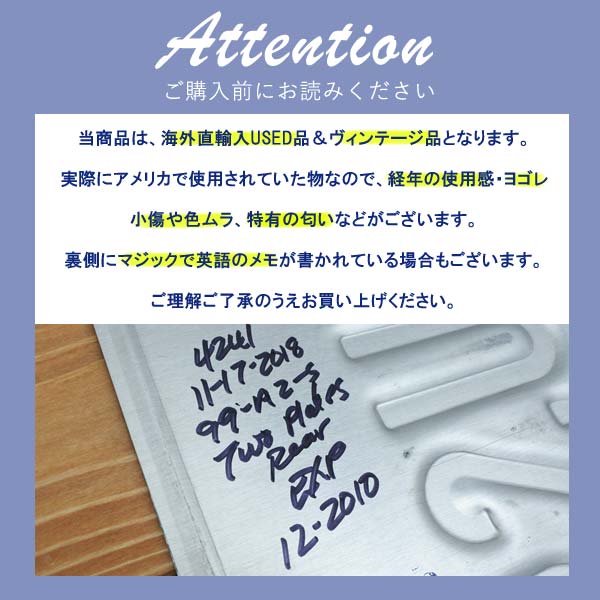 Attention
ご購入前にお読みください
当商品は、海外直輸入USED品＆ヴィンテージ品となります。
実際にアメリカで使用されていた物なので、経年の使用感・ヨゴレ
小傷や色ムラ、特有の匂いなどがございます。
裏側にマジックで英語のメモが書かれている場合もございます。
ご理解ご了承のうえお買い上げください。
4241
11-17-2018
99-A2-5
Two Plates
Rear
EXP
12-2010